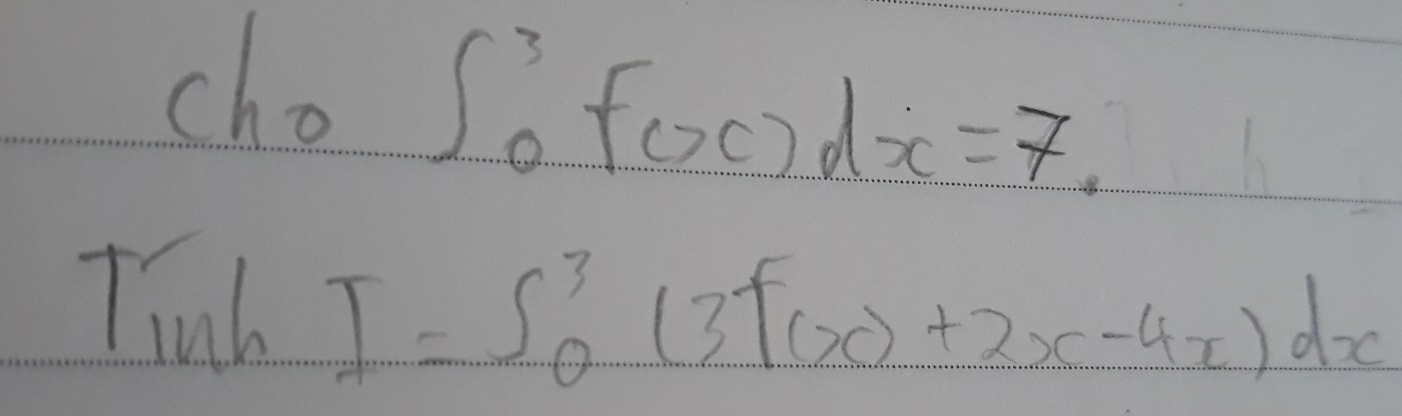 Cho ∫₀³ f(x)dx = 7.
Tính I = ∫₀³ (3f(x) + 2x - 4x) dx